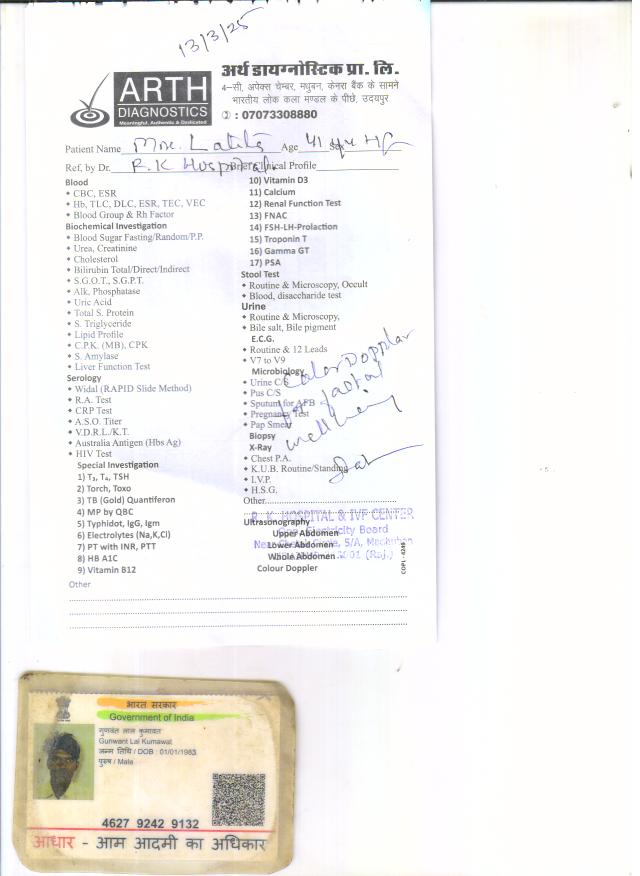 13/3/25
ARTH
DIAGNOSTICS
Meaningful, Authentic & Dedicated
अर्थ डायग्नोस्टिक प्रा. लि.
4–सी, अपेक्स चेम्बर, मधुबन, केनरा बैंक के सामने
भारतीय लोक कला मण्डल के पीछे, उदयपुर
: 07073308880
Patient Name Age 41 Sex
Ref, by Dr. R.K Hospital Brief Clinical Profile
Blood
CBC, ESR
Hb, TLC, DLC, ESR, TEC, VEC
Blood Group & Rh Factor
Biochemical Investigation
Blood Sugar Fasting/Random/P.P.
Urea, Creatinine
Cholesterol
Bilirubin Total/Direct/Indirect
S.G.O.T., S.G.P.T.
Alk, Phosphatase
Uric Acid
Total S. Protein
S. Triglyceride
Lipid Profile
C.P.K. (MB), CPK
S. Amylase
Liver Function Test
Serology
Widal (RAPID Slide Method)
R.A. Test
CRP Test
A.S.O. Titer
V.D.R.L./K.T.
Australia Antigen (Hbs Ag)
HIV Test
Special Investigation
1) T₃, T₄, TSH
2) Torch, Toxo
3) TB (Gold) Quantiferon
4) MP by QBC
5) Typhidot, IgG, Igm
6) Electrolytes (Na,K,Cl)
7) PT with INR, PTT
8) HB A1C
9) Vitamin B12
Other
10) Vitamin D3
11) Calcium
12) Renal Function Test
13) FNAC
14) FSH-LH-Prolaction
15) Troponin T
16) Gamma GT
17) PSA
Stool Test
Routine & Microscopy, Occult
Blood, disaccharide test
Urine
Routine & Microscopy,
Bile salt, Bile pigment
E.C.G.
Routine & 12 Leads
V7 to V9
Microbiology
Urine C/S
Pus C/S
Sputum for AFB
Pregnancy Test
Pap Smear
Biopsy
X-Ray
Chest P.A.
K.U.B. Routine/Standing
I.V.P.
H.S.G.
Other
Ultrasonography
Upper Abdomen
Lower Abdomen
Whole Abdomen
Colour Doppler
Color Dopplar
for
well being
R. K. HOSPITAL & IVF CENTER
Electricity Board
5/A, Madhuban
3001 (Raj.)
COPL - 4249
भारत सरकार
Government of India
गुणवंत लाल कुमावत
Gunwant Lal Kumawat
जन्म तिथि / DOB : 01/01/1983
पुरुष / Male
4627 9242 9132
आधार - आम आदमी का अधिकार